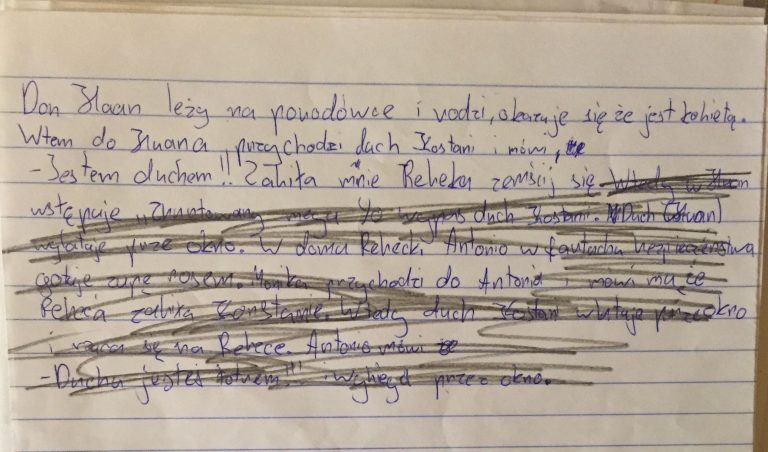 Don Huan leży na porodówce i rodzi, okazuje się że jest kobietą.
Wtem do Huana przychodzi duch Kostani i mówi,
- Jestem duchem!! Zabiła mnie Rebeka zemścij się. Wtedy w Huan
wstępuje duch Kostani. Duch (Huan)
wylatuje prze okno. W domu Rebecki Antonio w
gotuje zupę rosem. Monika przychodzi do Antonia i mówi mu że
Rebeca zabiła Konstanie. Wtedy duch Kostani wlatuje przez okno
i się na Rebece. Antonio mówi że
- Duchu jesteś !!! i wybiega przez okno.